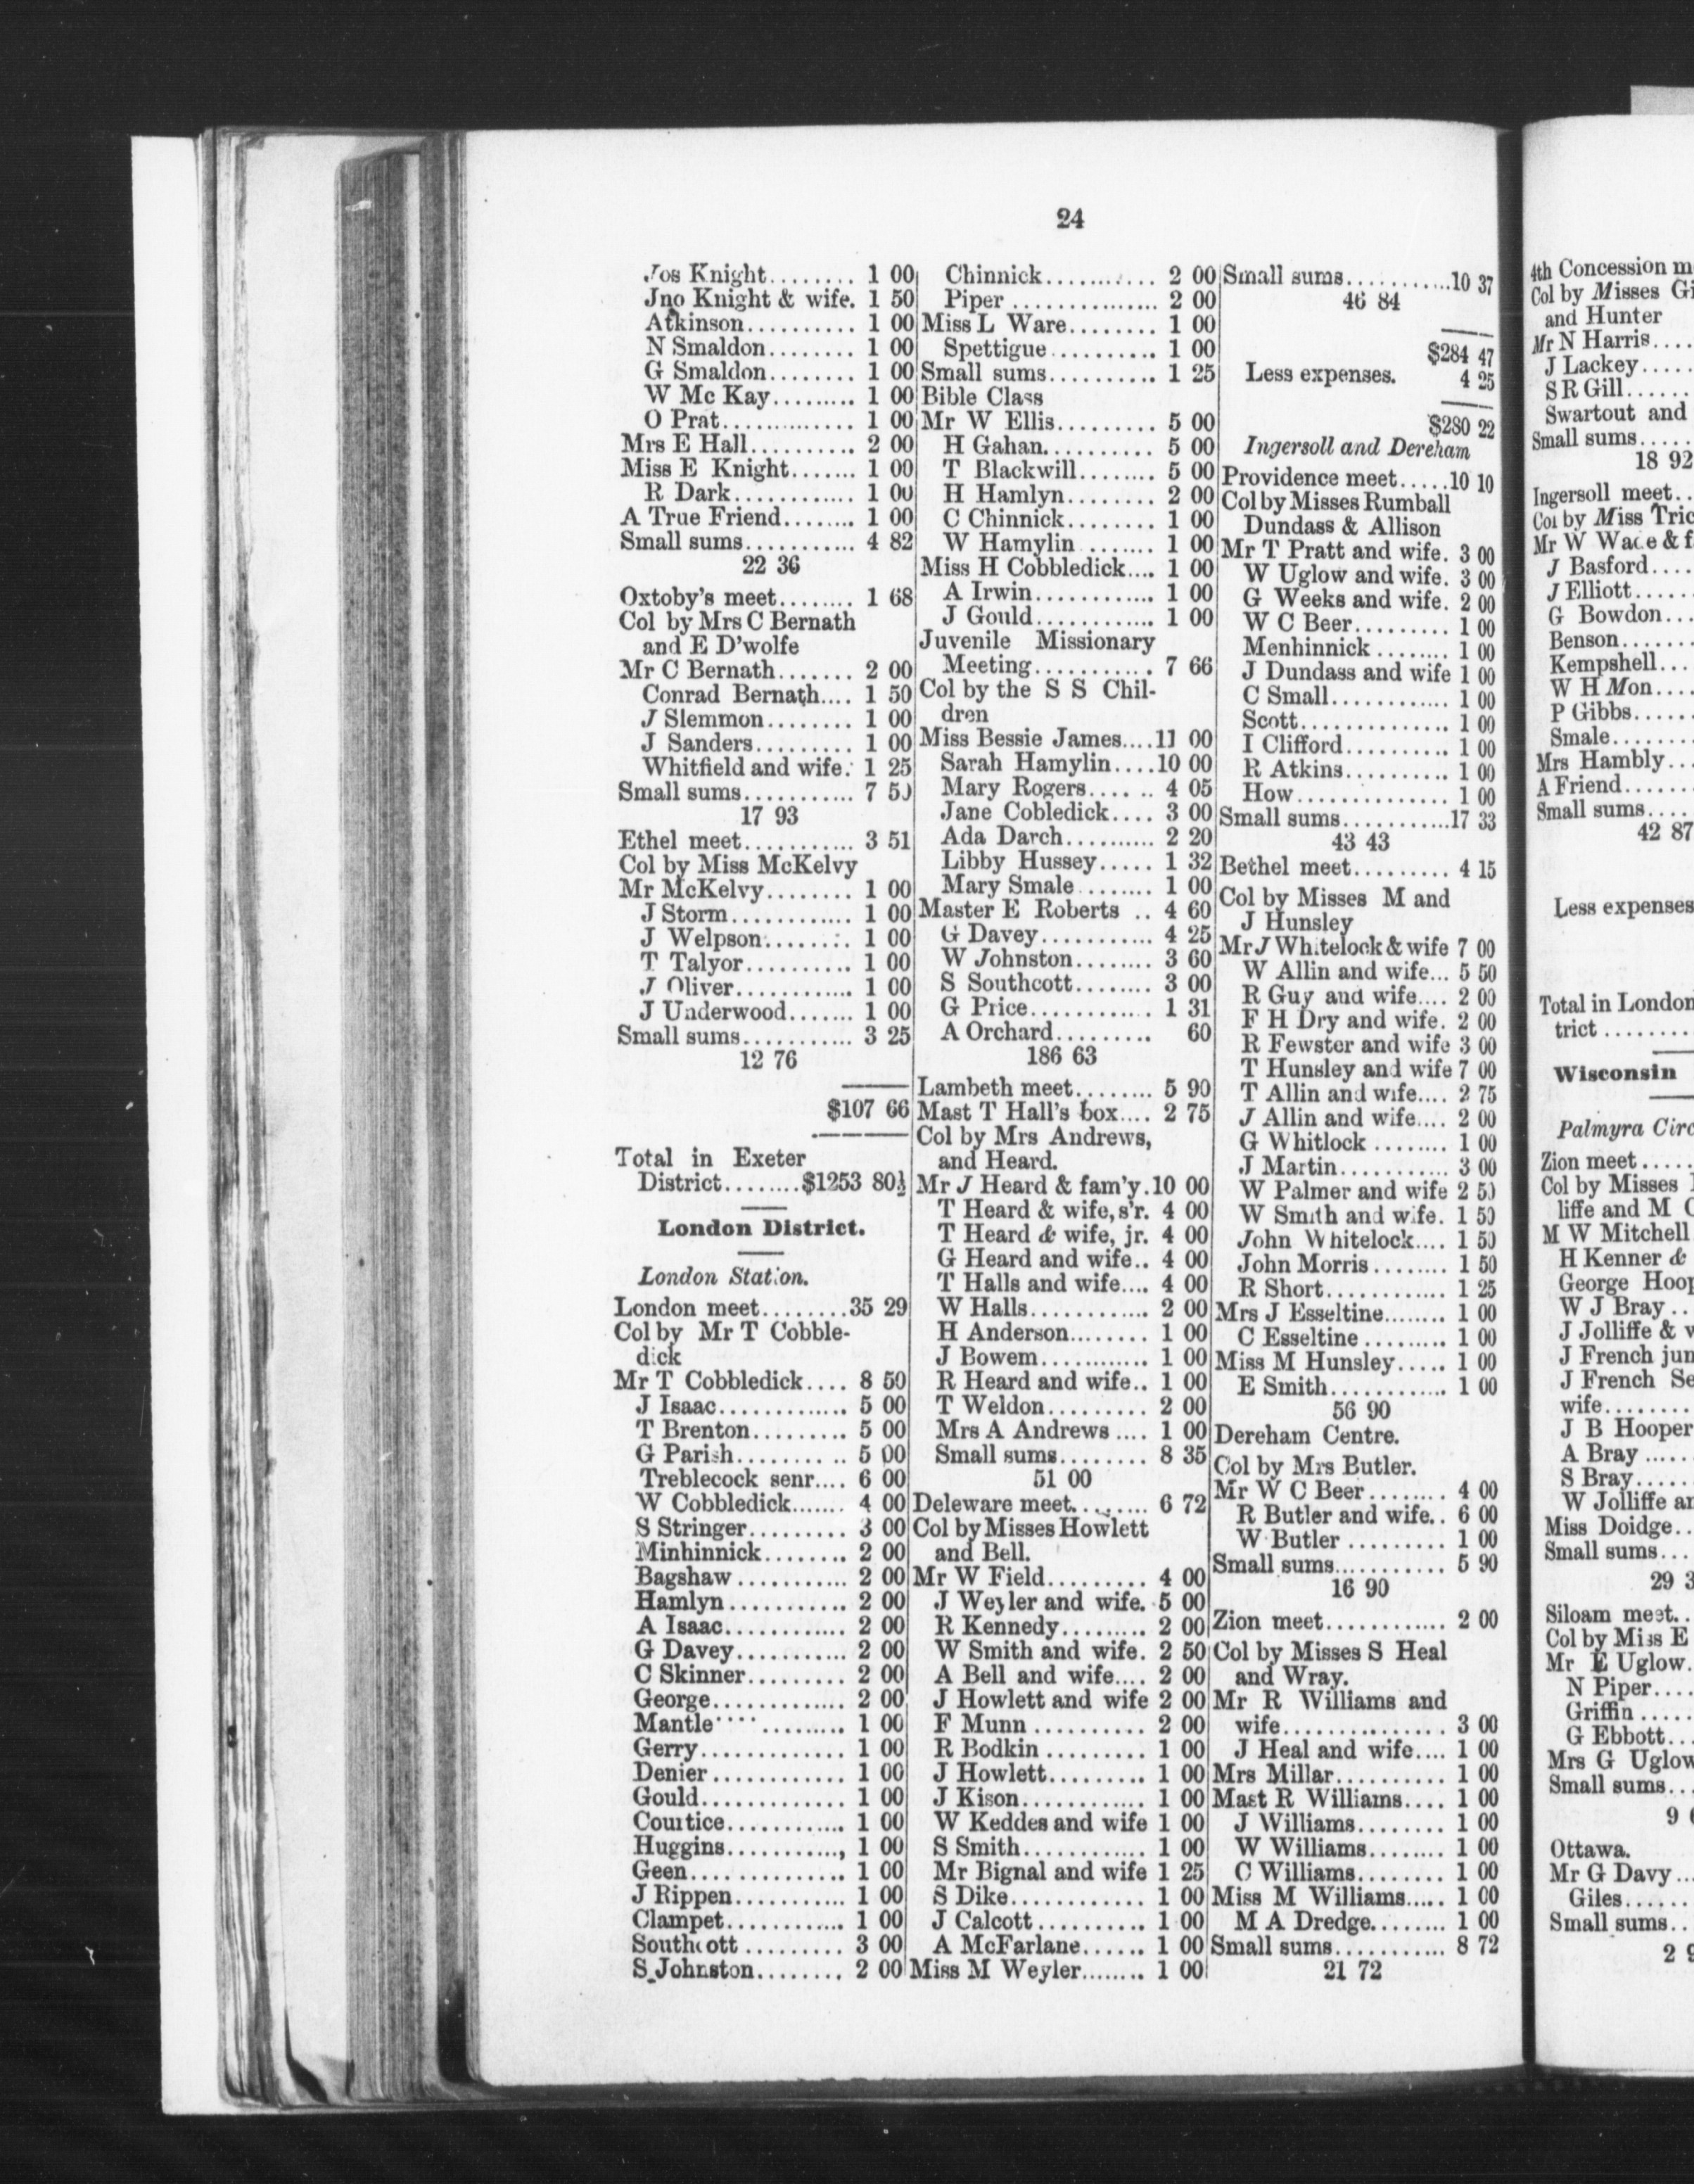 24
Jos Knight........ 1 00
Jno Knight & wife. 1 50
Atkinson.......... 1 00
N Smaldon........ 1 00
G Smaldon........ 1 00
W Mc Kay......... 1 00
O Prat............. 1 00
Mrs E Hall.......... 2 00
Miss E Knight....... 1 00
R Dark............ 1 00
A True Friend........ 1 00
Small sums........... 4 82
22 36
Oxtoby's meet........ 1 68
Col by Mrs C Bernath
and E D'wolfe
Mr C Bernath....... 2 00
Conrad Bernath.... 1 50
J Slemmon........ 1 00
J Sanders......... 1 00
Whitfield and wife. 1 25
Small sums........... 7 50
17 93
Ethel meet........... 3 51
Col by Miss McKelvy
Mr McKelvy........ 1 00
J Storm............ 1 00
J Welpson......... 1 00
T Talyor.......... 1 00
J Oliver............ 1 00
J Underwood....... 1 00
Small sums........... 3 25
12 76
$107 66
Total in Exeter
District........$1253 80½
London District.
London Station.
London meet........35 29
Col by Mr T Cobble-
dick
Mr T Cobbledick.... 8 50
J Isaac............. 5 00
T Brenton......... 5 00
G Parish.......... 5 00
Treblecock senr.... 6 00
W Cobbledick....... 4 00
S Stringer......... 3 00
Minhinnick........ 2 00
Bagshaw........... 2 00
Hamlyn............ 2 00
A Isaac............ 2 00
G Davey........... 2 00
C Skinner......... 2 00
George............. 2 00
Mantle............. 1 00
Gerry............. 1 00
Denier............. 1 00
Gould............. 1 00
Courtice............ 1 00
Huggins..........., 1 00
Geen............... 1 00
J Rippen........... 1 00
Clampet............ 1 00
Southcott.......... 3 00
S Johnston........ 2 00
Chinnick........... 2 00
Piper.............. 2 00
Miss L Ware........ 1 00
Spettigue.......... 1 00
Small sums.......... 1 25
Bible Class
Mr W Ellis......... 5 00
H Gahan........... 5 00
T Blackwill........ 5 00
H Hamlyn......... 2 00
C Chinnick........ 1 00
W Hamylin ....... 1 00
Miss H Cobbledick.... 1 00
A Irwin............ 1 00
J Gould............ 1 00
Juvenile Missionary
Meeting............ 7 66
Col by the S S Chil-
dren
Miss Bessie James....11 00
Sarah Hamylin....10 00
Mary Rogers...... 4 05
Jane Cobledick.... 3 00
Ada Darch.......... 2 20
Libby Hussey..... 1 32
Mary Smale........ 1 00
Master E Roberts .. 4 60
G Davey........... 4 25
W Johnston........ 3 60
S Southcott........ 3 00
G Price............ 1 31
A Orchard......... 60
186 63
Lambeth meet........ 5 90
Mast T Hall's box.... 2 75
Col by Mrs Andrews,
and Heard.
Mr J Heard & fam'y.10 00
T Heard & wife, s'r. 4 00
T Heard & wife, jr. 4 00
G Heard and wife.. 4 00
T Halls and wife.... 4 00
W Halls........... 2 00
H Anderson........ 1 00
J Bowem............ 1 00
R Heard and wife.. 1 00
T Weldon......... 2 00
Mrs A Andrews .... 1 00
Small sums........ 8 35
51 00
Deleware meet........ 6 72
Col by Misses Howlett
and Bell.
Mr W Field......... 4 00
J Weyler and wife. 5 00
R Kennedy......... 2 00
W Smith and wife. 2 50
A Bell and wife.... 2 00
J Howlett and wife 2 00
F Munn .......... 2 00
R Bodkin ......... 1 00
J Howlett......... 1 00
J Kison............ 1 00
W Keddes and wife 1 00
S Smith............ 1 00
Mr Bignal and wife 1 25
S Dike............ 1 00
J Calcott.......... 1 00
A McFarlane...... 1 00
Miss M Weyler........ 1 00
Small sums...........10 37
46 84
$284 47
Less expenses. 4 25
$280 22
Ingersoll and Dereham
Providence meet.....10 10
Col by Misses Rumball
Dundass & Allison
Mr T Pratt and wife. 3 00
W Uglow and wife. 3 00
G Weeks and wife. 2 00
W C Beer......... 1 00
Menhinnick ........ 1 00
J Dundass and wife 1 00
C Small............ 1 00
Scott............... 1 00
I Clifford.......... 1 00
R Atkins.......... 1 00
How............... 1 00
Small sums...........17 33
43 43
Bethel meet......... 4 15
Col by Misses M and
J Hunsley
Mr J Whitelock & wife 7 00
W Allin and wife... 5 50
R Guy and wife.... 2 00
F H Dry and wife. 2 00
R Fewster and wife 3 00
T Hunsley and wife 7 00
T Allin and wife.... 2 75
J Allin and wife.... 2 00
G Whitlock ........ 1 00
J Martin........... 3 00
W Palmer and wife 2 50
W Smith and wife. 1 50
John Whitelock.... 1 50
John Morris........ 1 50
R Short............ 1 25
Mrs J Esseltine........ 1 00
C Esseltine ......... 1 00
Miss M Hunsley..... 1 00
E Smith............ 1 00
56 90
Dereham Centre.
Col by Mrs Butler.
Mr W C Beer........ 4 00
R Butler and wife.. 6 00
W Butler .......... 1 00
Small sums........... 5 90
16 90
Zion meet............ 2 00
Col by Misses S Heal
and Wray.
Mr R Williams and
wife................ 3 00
J Heal and wife.... 1 00
Mrs Millar.......... 1 00
Mast R Williams.... 1 00
J Williams........ 1 00
W Williams........ 1 00
C Williams........ 1 00
Miss M Williams..... 1 00
M A Dredge........ 1 00
Small sums........... 8 72
21 72
4th Concession
Col by Misses
and Hunter
Mr N Harris....
J Lackey.....
S R Gill......
Swartout and
Small sums.....
18 92
Ingersoll meet..
Col by Miss
Mr W Wace &
J Basford....
J Elliott.....
G Bowdon...
Benson......
Kempshell...
W H Mon....
P Gibbs.....
Smale.......
Mrs Hambly...
A Friend......
Small sums....
42 87
Less expenses
Total in London
trict ........
Wisconsin
Palmyra
Zion meet.....
Col by Misses
liffe and M
M W Mitchell
H Kenner &
George
W J Bray..
J Jolliffe &
J French jun
J French
wife........
J B Hooper
A Bray.....
S Bray.....
W Jolliffe
Miss Doidge..
Small sums...
29
Siloam meet..
Col by Miss E
Mr E Uglow.
N Piper....
Griffin.....
G Ebbott...
Mrs G Uglow
Small sums...
9
Ottawa.
Mr G Davy...
Giles......
Small sums..
2